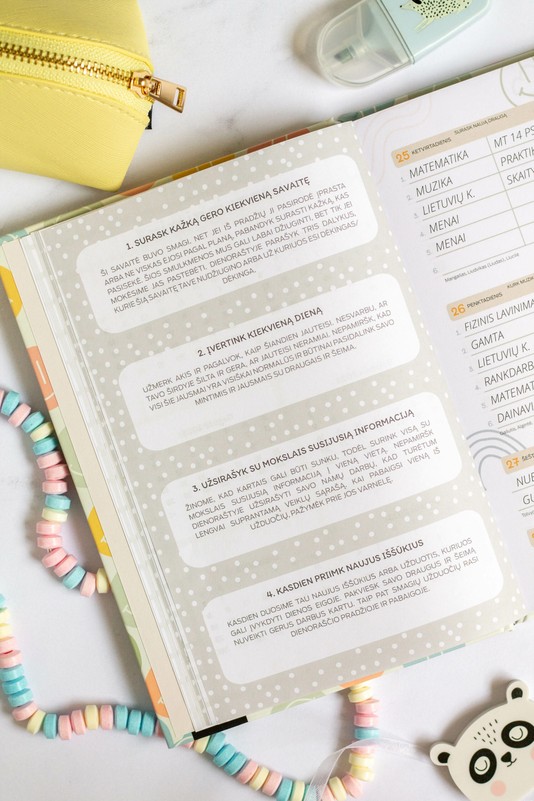 1. SURASK KAŽKĄ GERO KIEKVIENĄ SAVAITĘ
ŠI SAVAITĖ BUVO SMAGI, NET JEI IŠ PRADŽIŲ JI PASIRODĖ ĮPRASTA
ARBA NE VISKAS ĖJOSI PAGAL PLANĄ, PABANDYK SURASTI KAŽKĄ, KAS
PASISEKĖ. ŠIOS SMULKMENOS MUS GALI LABAI DŽIUGINTI, BET TIK JEI
MOKĖSIME JAS PASTEBĖTI. DIENORAŠTYJE PARAŠYK TRIS DALYKUS,
KURIE ŠIĄ SAVAITĘ TAVE NUDŽIUGINO ARBA UŽ KURIUOS ESI DĖKINGAS/
DĖKINGA.
2. ĮVERTINK KIEKVIENĄ DIENĄ
UŽMERK AKIS IR PAGALVOK, KAIP ŠIANDIEN JAUTEISI, NESVARBU, AR
TAVO ŠIRDYJE ŠILTA IR GERA, AR JAUTEISI NERAMIAI. NEPAMIRŠK, KAD
VISI ŠIE JAUSMAI YRA VISIŠKAI NORMALŪS IR BŪTINAI PASIDALINK SAVO
MINTIMIS IR JAUSMAIS SU DRAUGAIS IR ŠEIMA.
3. UŽSIRAŠYK SU MOKSLAIS SUSIJUSIĄ INFORMACIJĄ
ŽINOME, KAD KARTAIS GALI BŪTI SUNKU, TODĖL SURINK VISĄ SU
MOKSLAIS SUSIJUSIĄ INFORMACIJĄ Į VIENĄ VIETĄ. NEPAMIRŠK
DIENORAŠTYJE UŽSIRAŠYTI SAVO NAMŲ DARBŲ, KAD TURĖTUM
LENGVAI SUPRANTAMĄ VEIKLŲ SĄRAŠĄ, KAI PABAIGSI VIENĄ IŠ
UŽDUOČIŲ, PAŽYMĖK PRIE JOS VARNELĘ.
4. KASDIEN PRIIMK NAUJUS IŠŠŪKIUS
KASDIEN DUOSIME TAU NAUJUS IŠŠŪKIUS ARBA UŽDUOTIS, KURIUOS
GALI ĮVYKDYTI DIENOS EIGOJE. PAKVIESK SAVO DRAUGUS IR ŠEIMĄ
NUVEIKTI GERUS DARBUS KARTU. TAIP PAT SMAGIŲ UŽDUOČIŲ RASI
DIENORAŠČIO PRADŽIOJE IR PABAIGOJE.
25 KETVIRTADIENIS SURASK NAUJĄ DRAUGĄ
1. MATEMATIKA MT 14 PS
2. MUZIKA PRAKTI
3. LIETUVIŲ K. SKAITY
4. MENAI
5. MENAI
6.
26 PENKTADIENIS
1. FIZINIS LAVINIMA
2. GAMTA
3. LIETUVIŲ K.
4. RANKDARB
5. MATEMAT
6. DAINAVI
27
NUE